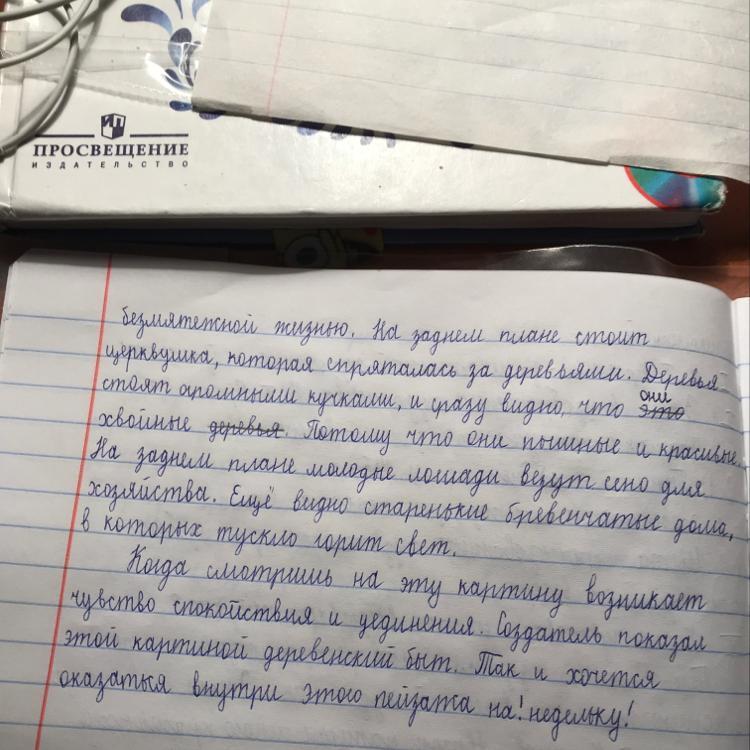 ПРОСВЕЩЕНИЕ
ИЗДАТЕЛЬСТВО
безмятежной жизнью. На заднем плане стоит
церквушка, которая спряталась за деревьями. Деревья
стоят огромными кучками, и сразу видно, что ~~это~~ они
хвойные ~~деревья~~. Потому что они пышные и красивые.
На заднем плане молодые лошади везут сено для
хозяйства. Ещё видно старенькие бревенчатые дома,
в которых тускло горит свет.
Когда смотришь на эту картину возникает
чувство спокойствия и уединения. Создатель показал
этой картиной деревенский быт. Так и хочется
оказаться внутри этого пейзажа на! недельку!